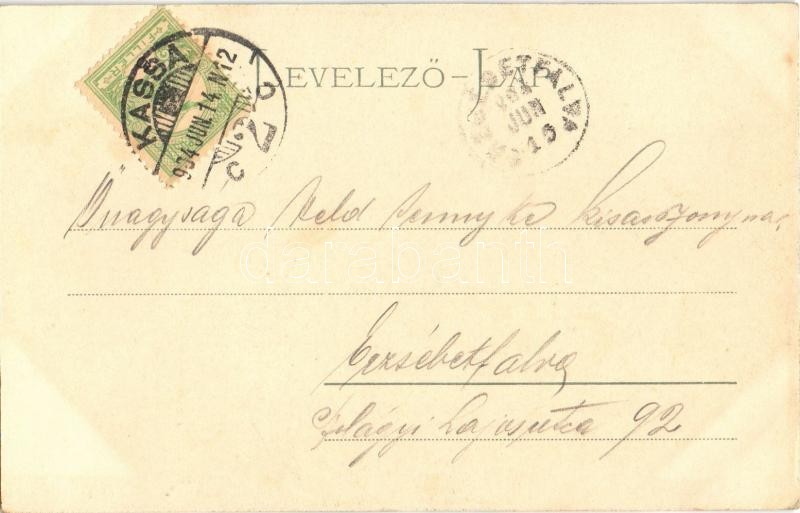 LEVELEZŐ-LAP
FILLÉR
KASSA
904 JUN. 14. N12
C 2
ERZSÉBETFALVA
904 JUN 15
Őnagysága Veld Jennyke kisasszonynak
darabanth
Erzsébetfalva
Szilágyi Lajos utca 92